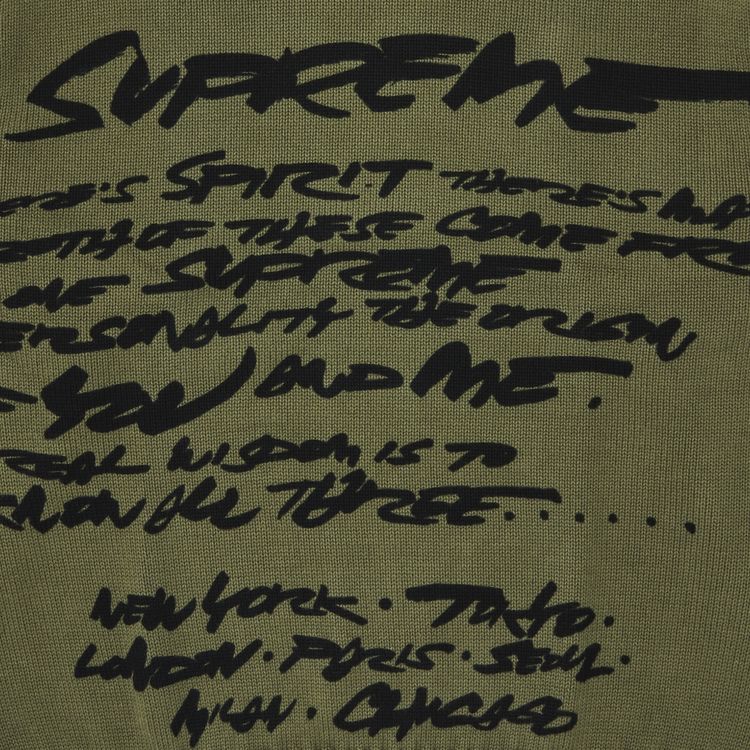 SUPREME
ERE'S SPIRIT THERE'S MA
OTH OF THESE COME FRO
ONE SUPREME
PERSONALITY THE ORIGIN
YOU AND ME.
REAL WISDOM IS TO
KNOW ALL THREE.......
NEW YORK · TOKYO ·
LONDON · PARIS · SEOUL ·
MILAN · CHICAGO